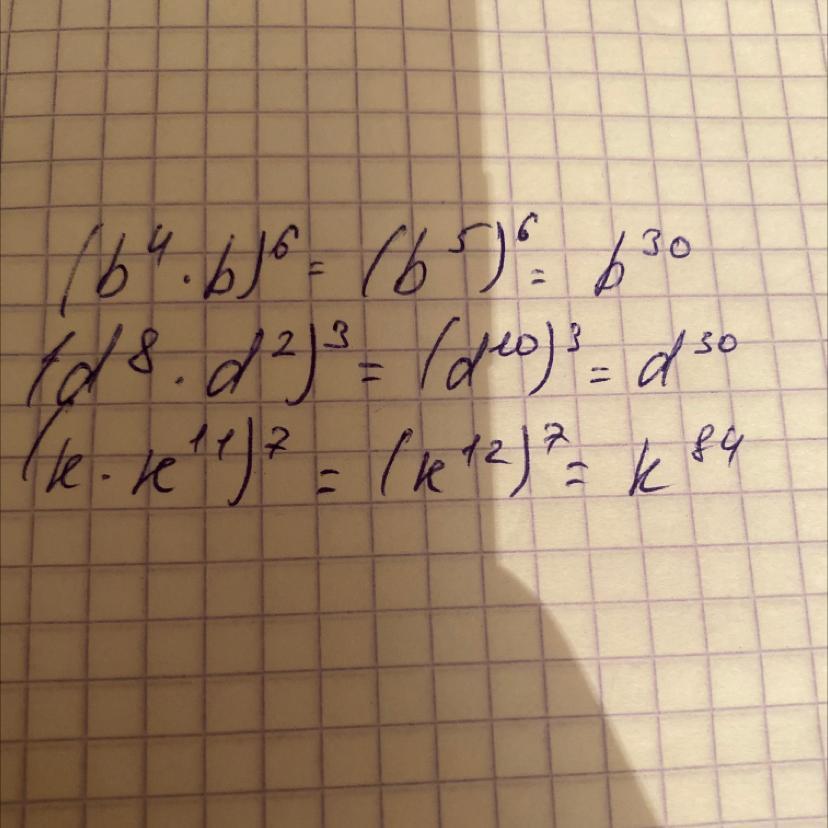 (b⁴ · b)⁶ = (b⁵)⁶ = b³⁰
(d⁸ · d²)³ = (d¹⁰)³ = d³⁰
(k · k¹¹)⁷ = (k¹²)⁷ = k⁸⁴